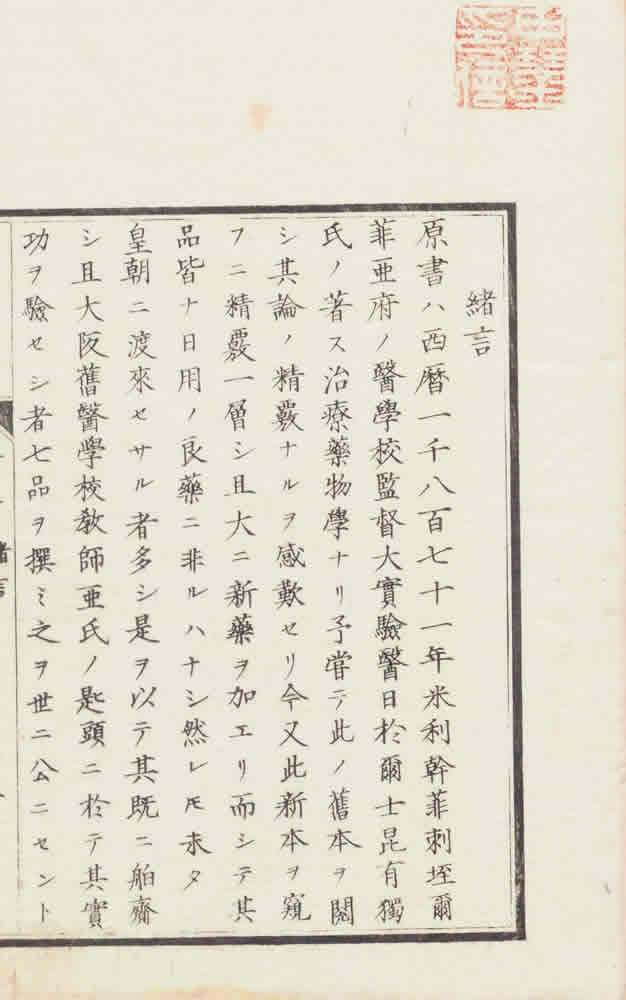 緒言
原書ハ西暦一千八百七十一年米利幹菲刺垤爾
菲亜府ノ醫學校監督大實驗醫日於爾士昆有獨
氏ノ著ス治療藥物學ナリ予嘗テ此ノ舊本ヲ閲
シ其論ノ精覈ナルヲ感歎セリ今又此新本ヲ窺
フニ精覈一層シ且大ニ新藥ヲ加エリ而シテ其
品皆ナ日用ノ良藥ニ非ルハナシ然レ𪜈未タ
皇朝ニ渡來セサル者多シ是ヲ以テ其既ニ舶齎
シ且大阪舊醫學校教師亜氏ノ匙頭ニ於テ其實
功ヲ驗セシ者七品ヲ撰ミ之ヲ世ニ公ニセント
緒言